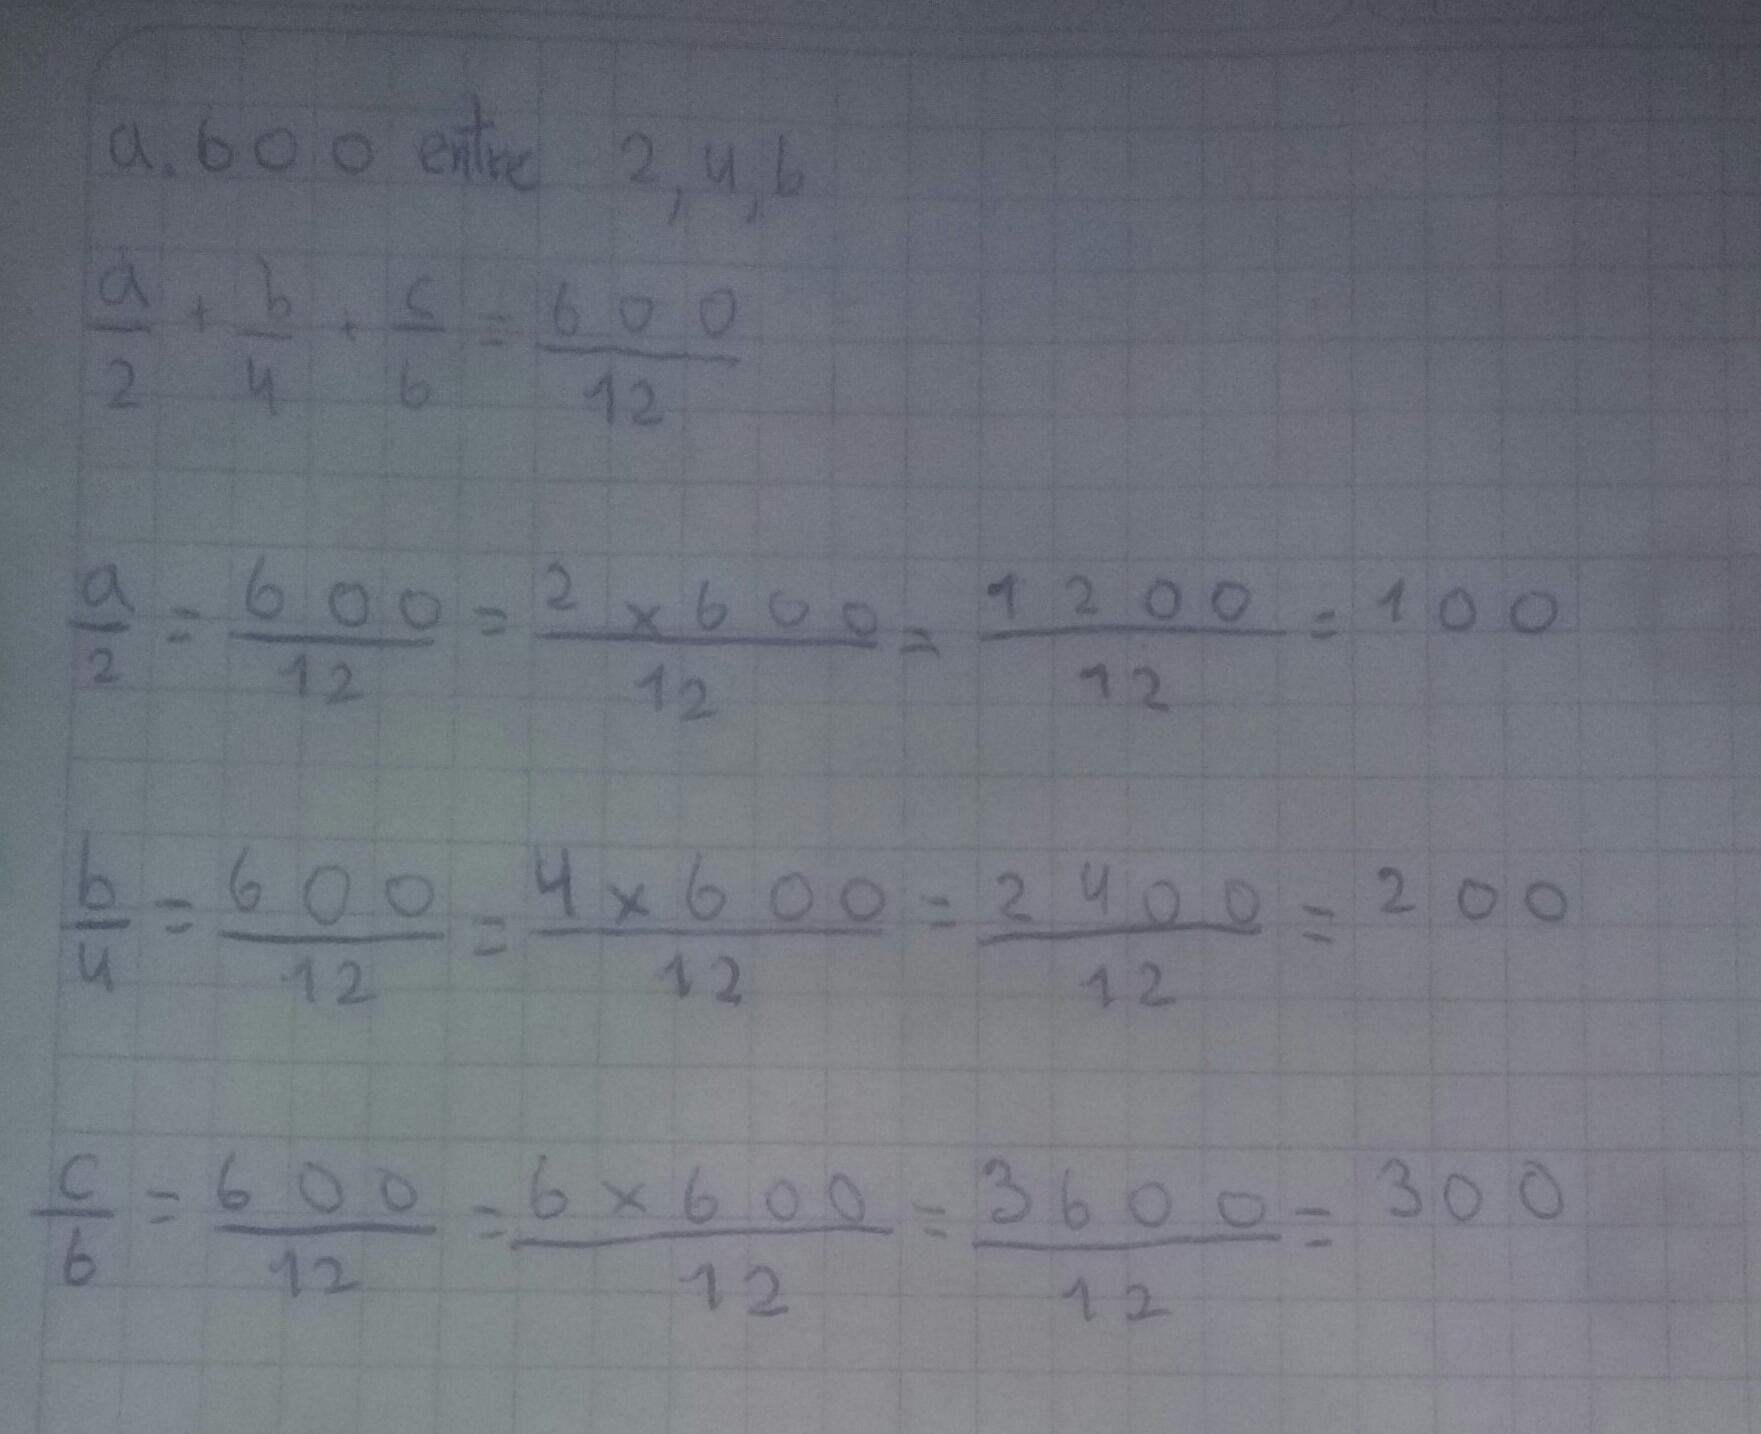 a. 600 entre 2, 4, 6
a/2 + b/4 + c/6 = 600/12
a/2 = 600/12 = 2 x 600/12 = 1200/12 = 100
b/4 = 600/12 = 4 x 600/12 = 2400/12 = 200
c/6 = 600/12 = 6 x 600/12 = 3600/12 = 300